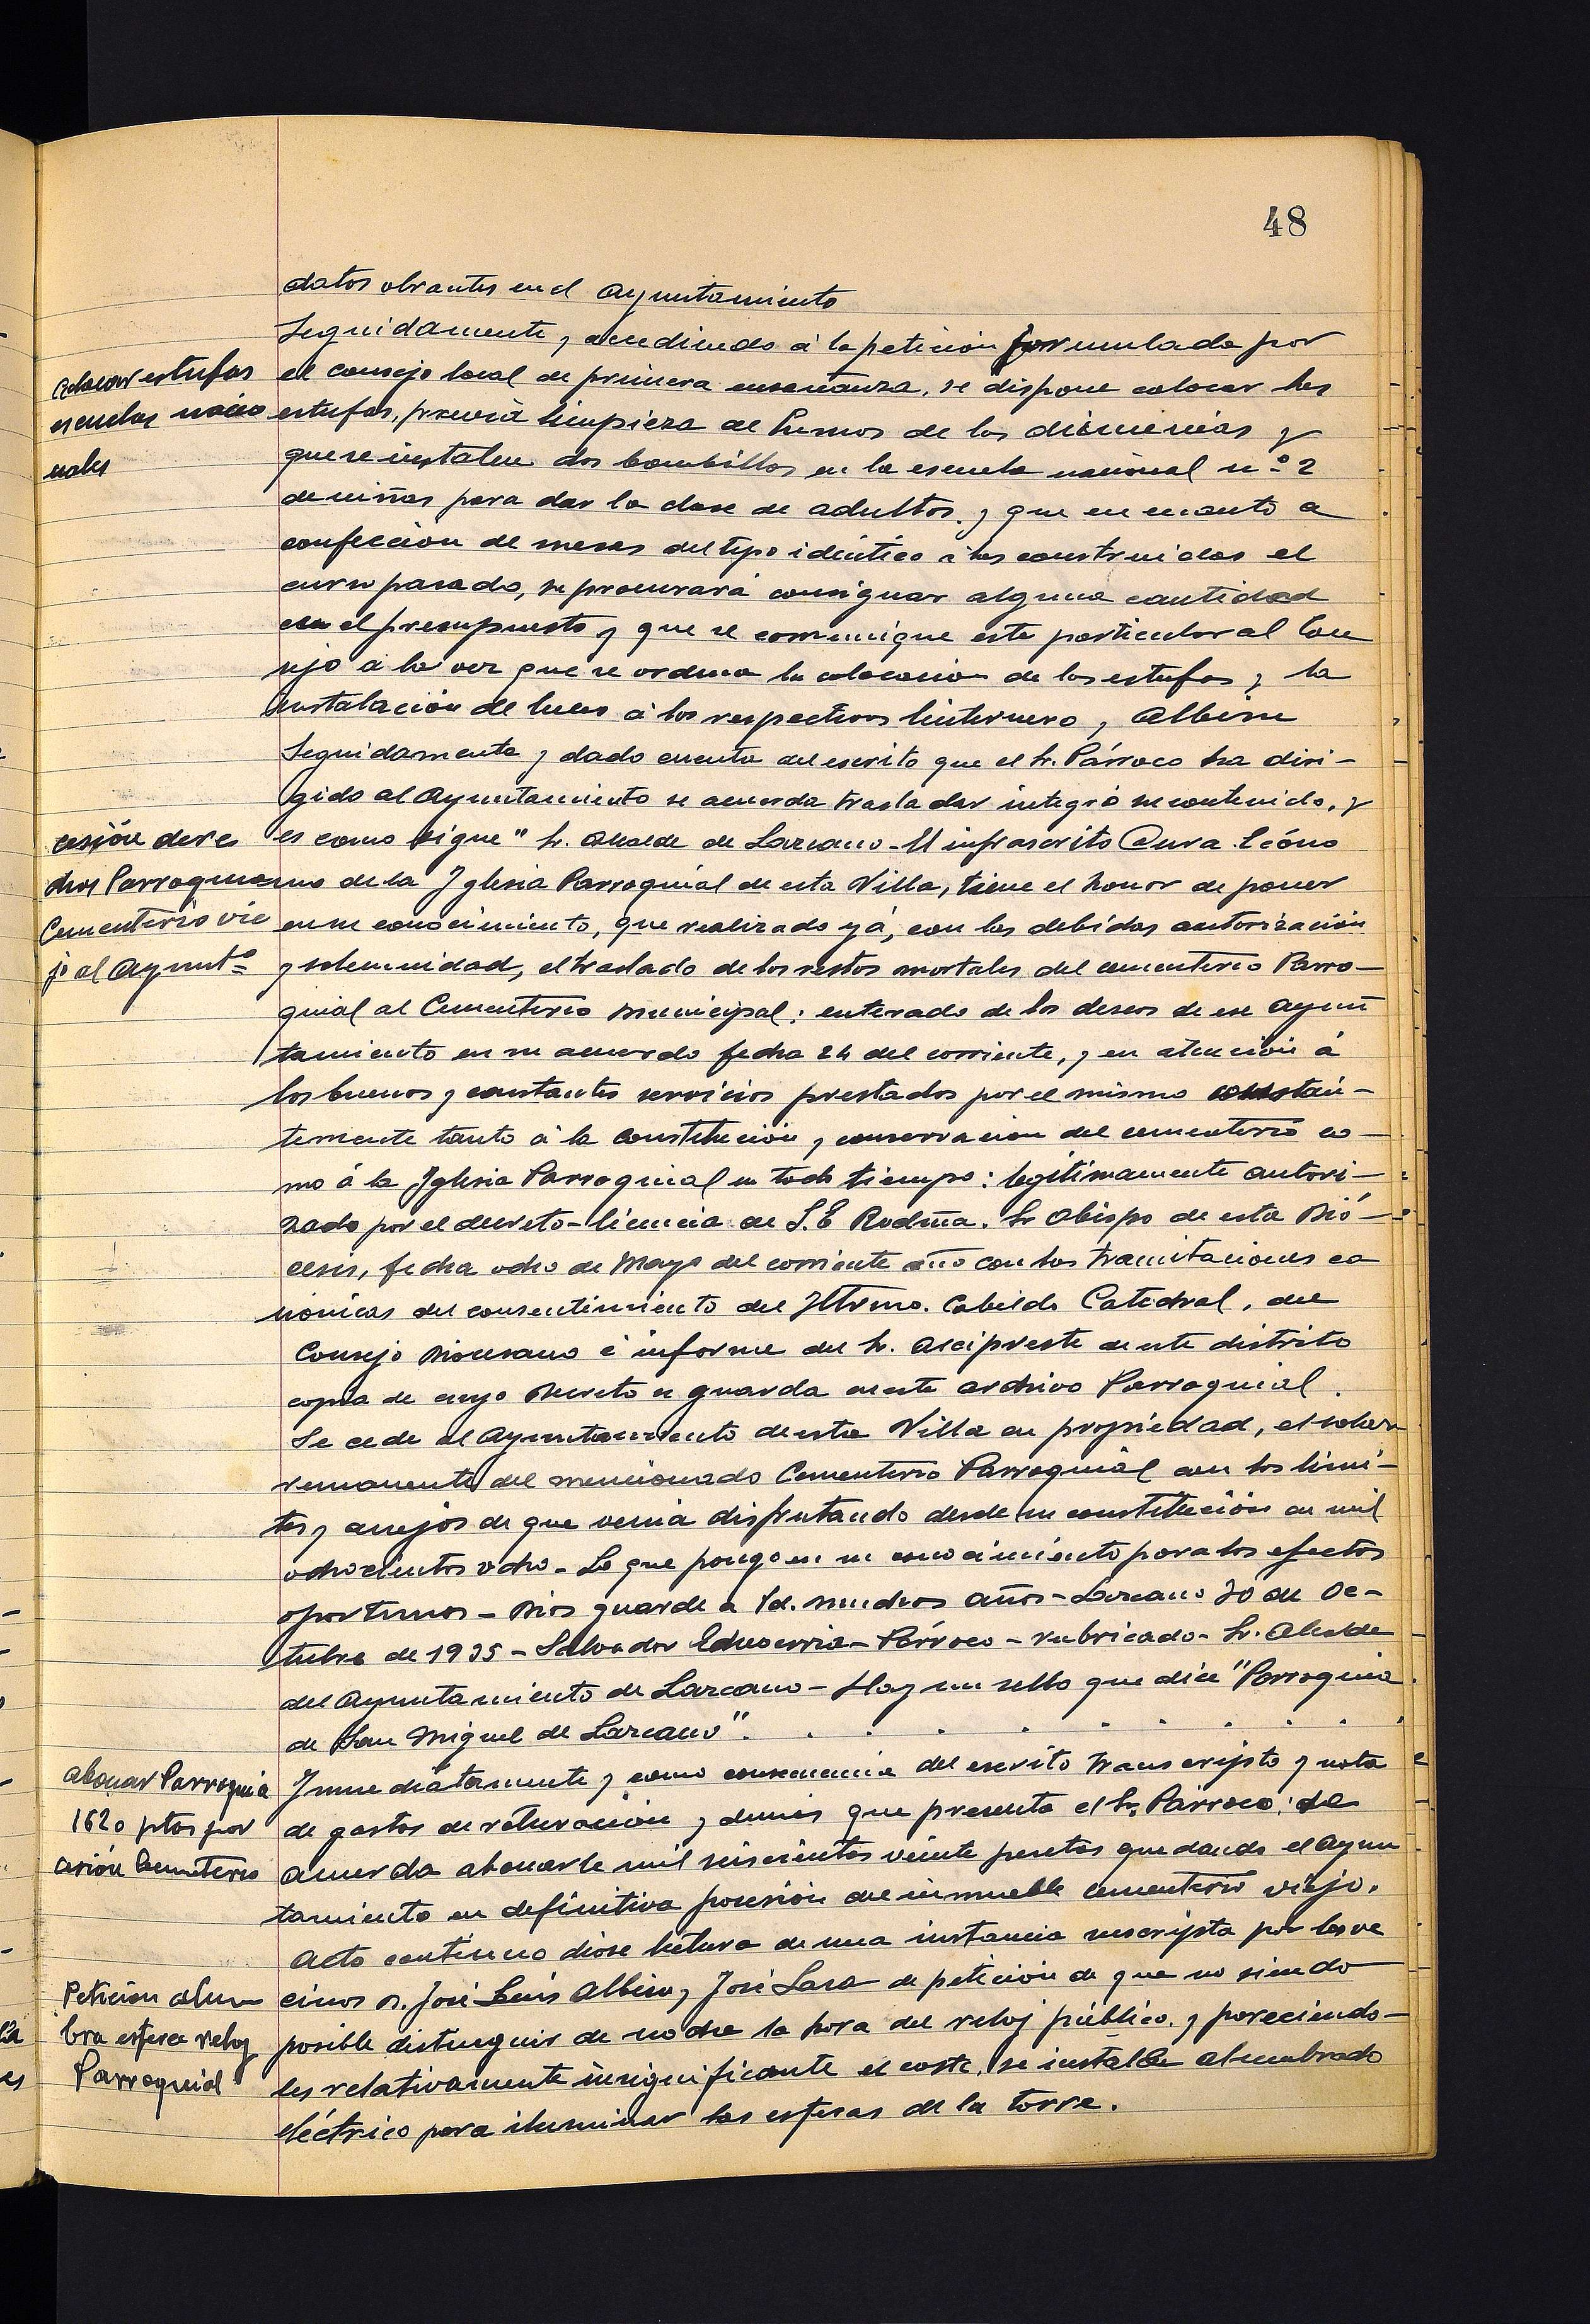 48
datos obrantes en el Ayuntamiento
Seguidamente y accediendo á la petición formulada por
Colocar estufas
el consejo local de primera enseñanza, se dispone colocar las
escuelas nacio
estufas, previa limpieza de humos de las chimeneas y
nales
que se instalen dos bombillas en la escuela nacional nº 2
de niñas para dar la clase de adultos, y que en cuanto a
confección de mesas del tipo idéntico á las construidas el
curso pasado, se procurará consignar alguna cantidad
en el presupuesto y que se comunique este particular al Con
sejo á la vez que se ordena la colocación de las estufas y la
instalación de luces á los respectivos linternero y Albisu
Seguidamente y dado cuenta del escrito que el Sr. Párroco ha diri-
gido al Ayuntamiento se acuerda trasladar integro su contenido, y
cesión dere
es como sigue "Sr. Alcalde de Lazcano - El infrascrito Cura Ecóno
chos Parroquia
mo de la Iglesia Parroquial de esta Villa, tiene el honor de poner
Cementerio vie
en su conocimiento, que realizado yá, con las debidas autorización
jo al Ayuntº
y solemnidad, el traslado de los restos mortales del cementerio Parro-
quial al Cementerio Municipal: enterado de los deseos de ese Ayun
tamiento en su acuerdo fecha 24 del corriente, y en atención á
los buenos y constantes servicios prestados por el mismo constan-
temente tanto á la constitución y conservacion del cementerio co-
mo á la Iglesia Parroquial en todo tiempo: legítimamente autori-
zado por el decreto-licencia de S.E Rvdma. Sr Obispo de esta Dió-
cesis, fecha ocho de Mayo del corriente año con las tramitaciones ca
nónicas del consentimiento del Iltrmo. Cabildo Catedral, del
Consejo Diocesano é informe del Sr. Arcipreste de este distrito
copia de cuyo Decreto se guarda en este archivo Parroquial.
Se cede al Ayuntamiento de esta Villa en propiedad, el solar
remanente del mencionado Cementerio Parroquial con los limi-
tes y anejos de que venia disfrutando desde su constitución en mil
ochocientos ocho - Lo que pongo en su conocimiento para los efectos
oportunos - Dios guarde a Vd. muchos años - Lazcano 30 de Oc-
tubre de 1935 - Salvador Echeverria - Párroco - rubricado - Sr. Alcalde
del Ayuntamiento de Lazcano - Hay un sello que dice "Parroquia
de San Miguel de Lazcano".
abonar Parroquia
Inmediatamente y como consecuencia del escrito transcripto y nota
1620 ptas por
de gastos de y demás que presenta el Sr. Párroco; se
cesión Cementerio
acuerda abonarle mil seiscientas veinte pesetas quedando el Ayun
tamiento en definitiva posesión del inmueble cementerio viejo.
Acto continuo dióse lectura de una instancia suscripta por los ve
Petición alum
cinos D. José Luis Albisu y José Lasa de petición de que no siendo
bra esfera reloj
posible distinguir de noche la hora del reloj público, y pareciendo-
Parroquial
les relativamente insignificante el coste, se instale alumbrado
eléctrico para iluminar las esferas de la torre.